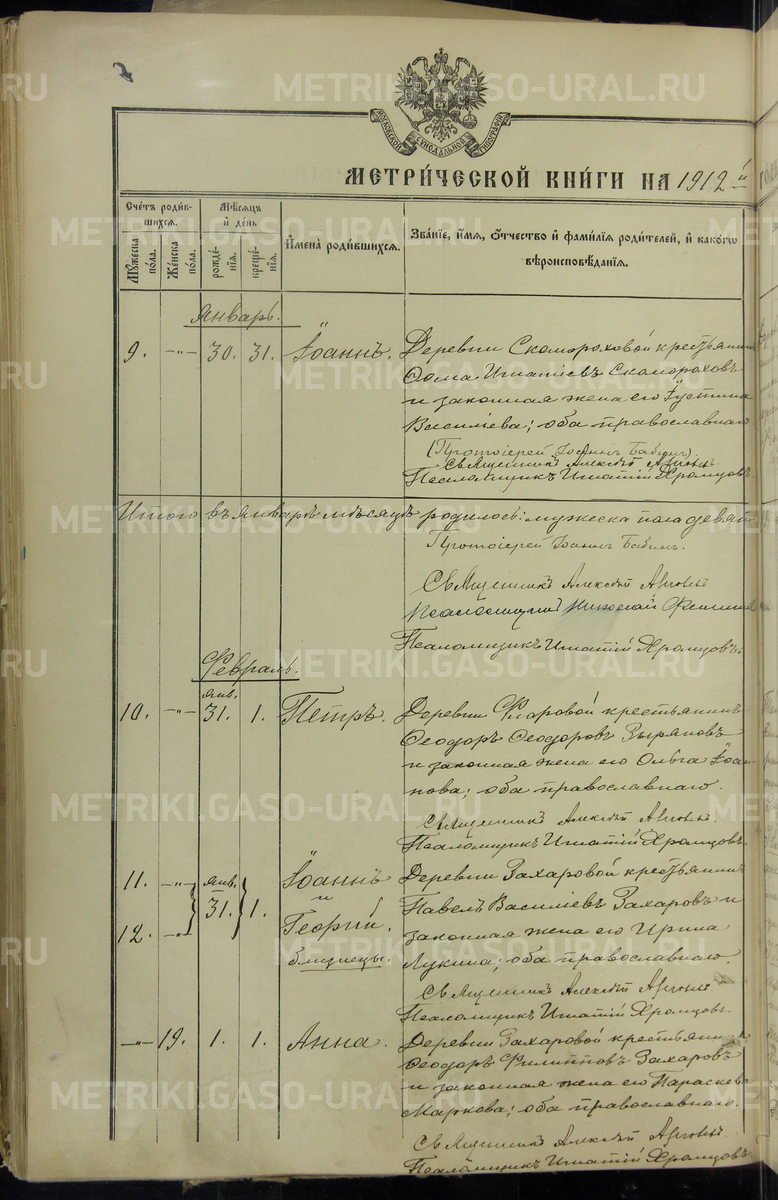 МОСКОВСКОЙ СѴНОДАЛЬНОЙ ТИПОГРАФІИ
МЕТРИ́ЧЕСКОЙ КНИ́ГИ НА 1912й
Сче́тъ роди́вшихся.
Мꙋ́жеска по́ла.
Же́нска по́ла.
Мѣ́сяцъ и҆ де́нь
рожде́нїѧ.
креще́нїѧ.
И҆мена̀ роди́вшихся.
Зва́нїе, и҆́мя, ѻ҆́тчество и҆ фами́лїя роди́телей, и҆ како́гѡ
вѣроисповѣ́данїя.
Январь.
9. –"– 30. 31. Іоаннъ. Деревни Скомороховой крестьянинъ
Ѳома Игнатіевъ Скомороховъ
и законная жена его Іустина
Василіева; оба православнаго
(Протоіерей Іоаннъ Бабинъ)
Священникъ Алексѣй
Псаломщикъ Игнатій Храмцовъ.
Итого въ январѣ мѣсяцѣ родилось: мужеска пола девять
Протоіерей Іоаннъ Бабинъ.
Священникъ Алексѣй
Псаломщикъ Николай
Псаломщикъ Игнатій Храмцовъ.
Февраль.
10. –"– янв. 31. 1. Петръ. Деревни Фларовой крестьянинъ
Ѳеодоръ Ѳеодоровъ Зыряновъ
и законная жена его Ольга Іоан
нова; оба православнаго.
Священникъ Алексѣй
Псаломщикъ Игнатій Храмцовъ.
11. –"– янв. 31. 1. Іоаннъ Деревни Захаровой крестьянинъ
и Павелъ Василіевъ Захаровъ и
12. –"– Георгій. законная жена его Ирина
близнецы. Лукина; оба православнаго.
Священникъ Алексѣй
Псаломщикъ Игнатій Храмцовъ.
–"– 19. 1. 1. Анна. Деревни Захаровой крестьянинъ
Ѳеодоръ Филипповъ Захаровъ
и законная жена его Параскева
Маркова; оба православнаго.
Священникъ Алексѣй
Псаломщикъ Игнатій Храмцовъ.
METRIKI.GASO-URAL.RU